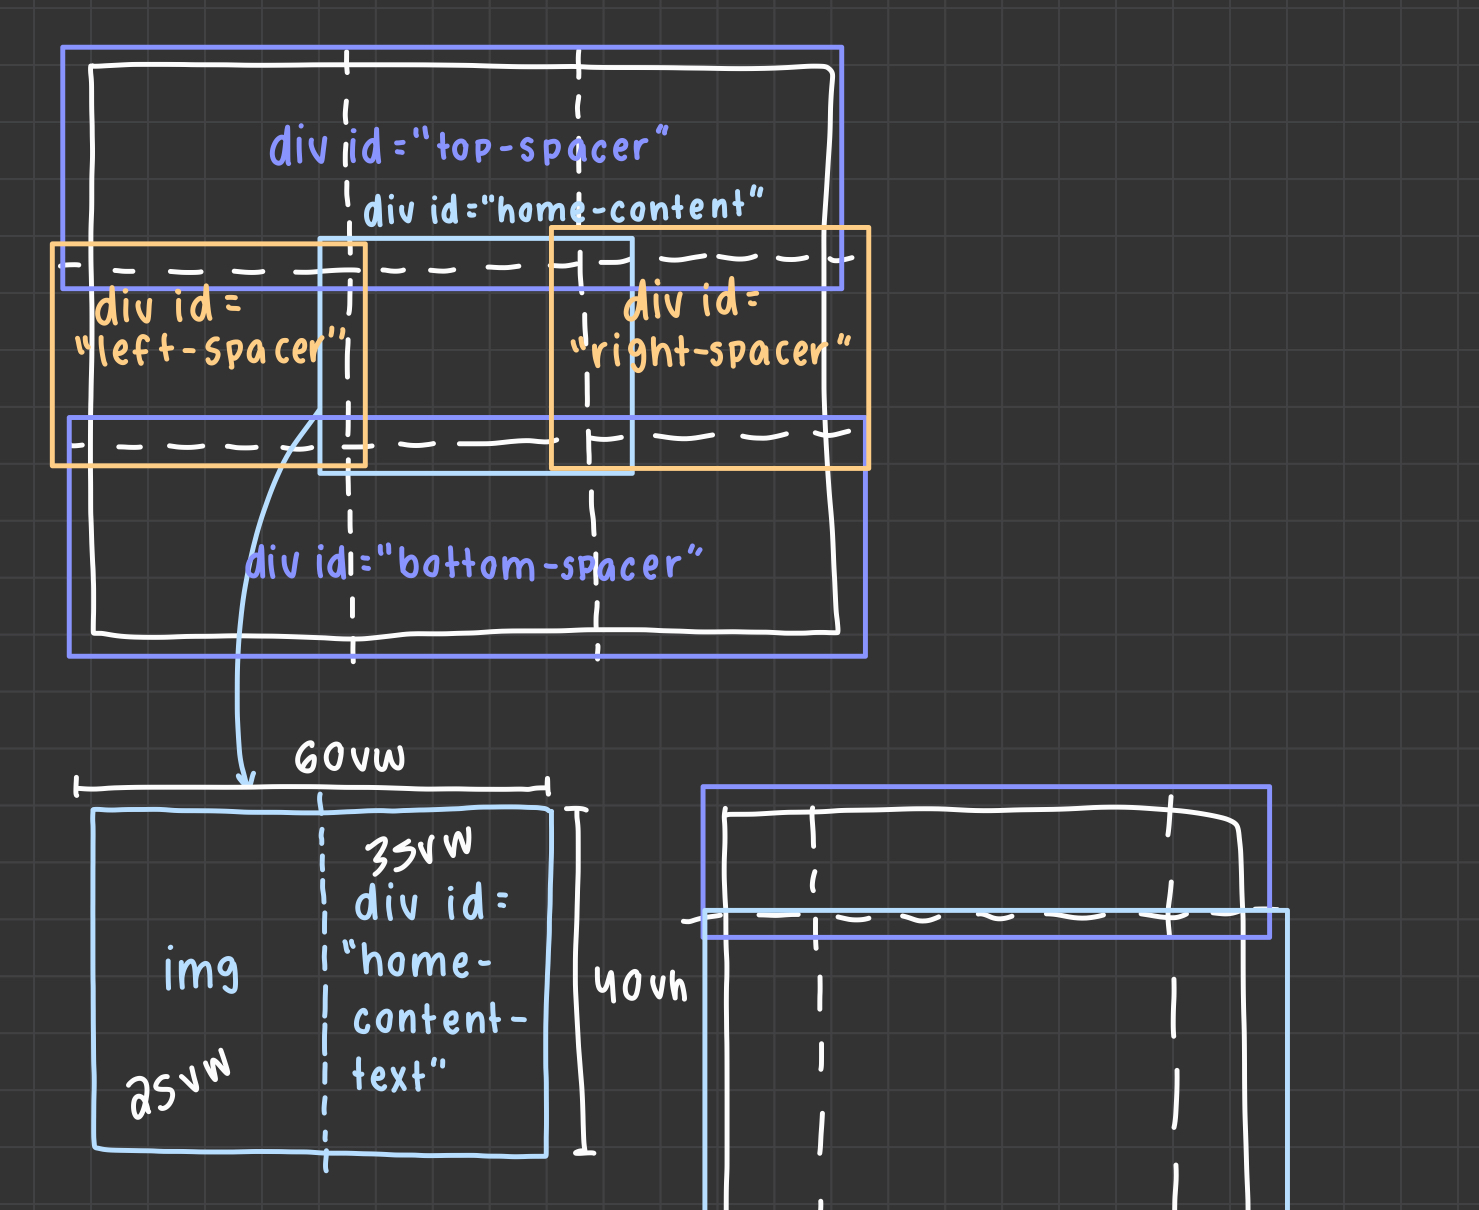 div id="top-spacer"
div id="home-content"
div id=
"left-spacer"
div id=
"right-spacer"
div id="bottom-spacer"
60vw
35vw
div id=
"home-
content-
text"
img
25vw
40vh